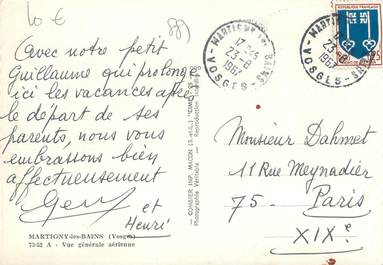 10 €
889
Avec notre petit
Guillaume qui prolonge
ici les vacances après
le départ de ses
parents, nous vous
embrassons bien
affectueusement
et
Henri
MARTIGNY-les-BAINS (Vosges)
73-52 A - Vue générale aérienne
COMBIER IMP. MACON (S.-et-L.) "CIM"
Photographie Véritable - Reproduction
MARTIGNY-les-BAINS
17 H 45
23-8
1967
VOSGES
MARTIGNY
17
23-8
1967
VOSGES
REPUBLIQUE FRANÇAISE
Monsieur Dahmet
11 Rue Meynadier
75 - Paris
XIXe